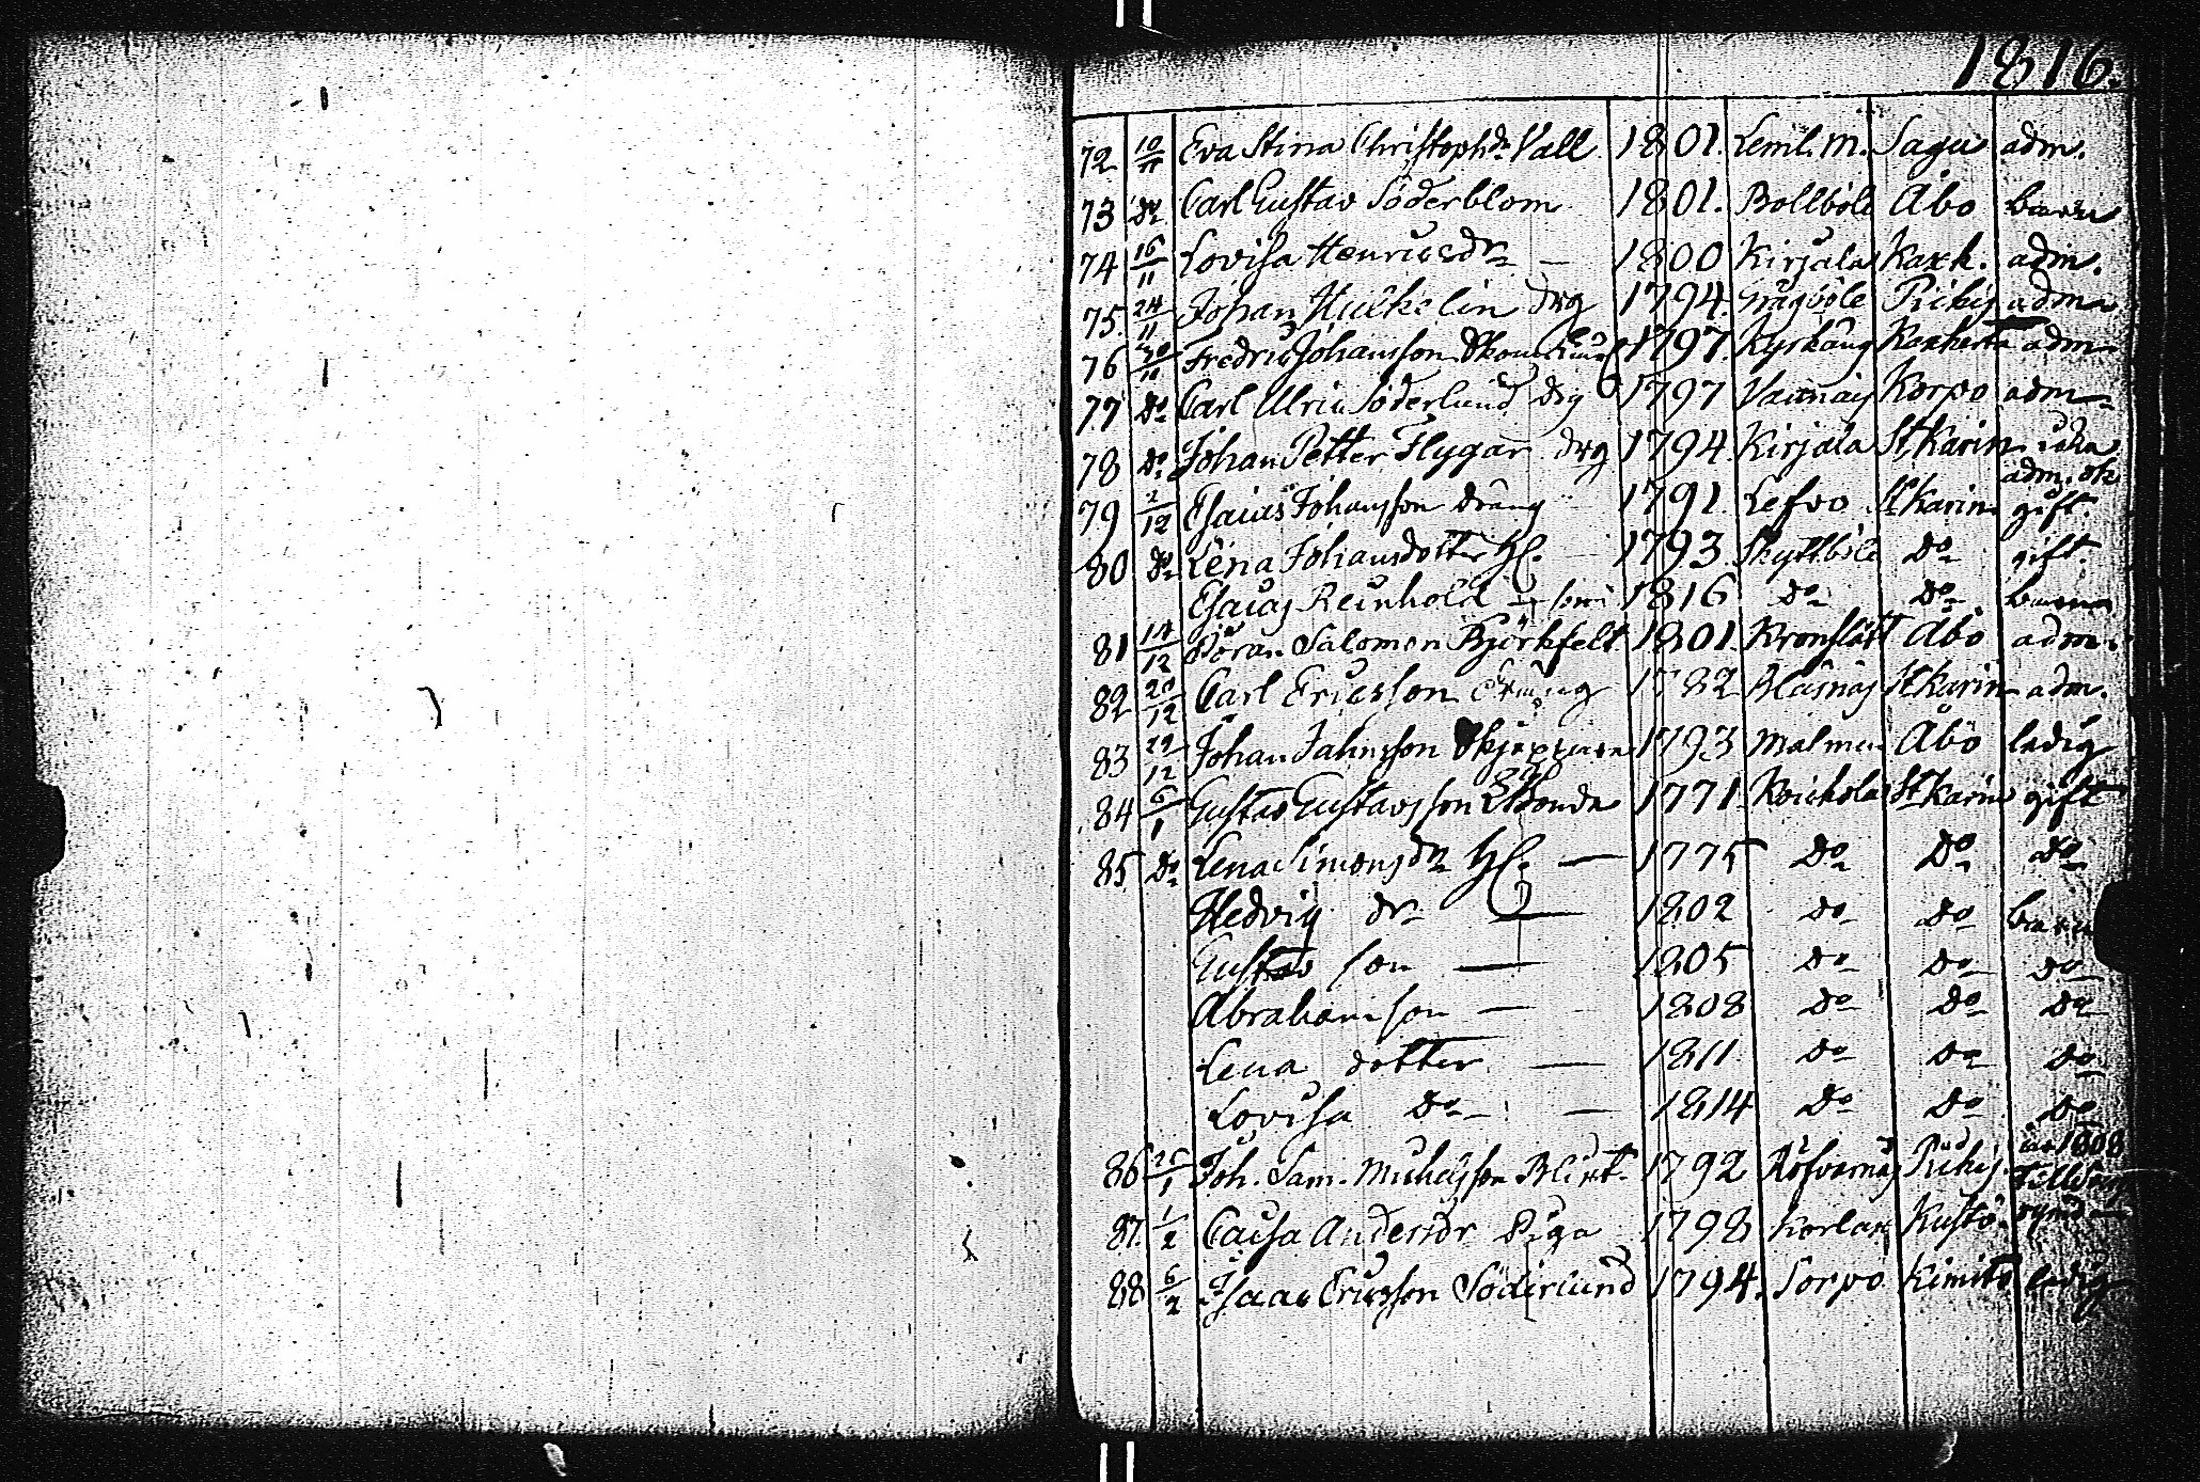 1816.
72 10/11 Eva Stina Christophdr Vall 1801. Leml. M. Sagu adm.
73 do Carl Gustav Söderblom 1801. Bollböle Åbo barn
74 16/11 Lovisa Henricsdr — 1800 Kirjala Karh. adm.
75. 24/11 Johan drg 1794. Pikis adm
76 30/11 Fredric Johansson 1797. adm
77 do Carl Ulric Söderlund drg 1797 Korpo adm
78 do Johan Petter Flygar drg 1794. Kirjala St Karin
adm. ok
79 2/12 Esaias Johansson dräng 1791. Lefvo St Karins gift.
80 do Lena Johansdotter H. 1793. Skyttböle do gift.
Esaias Reinhold — son 1816 do do barn
81 14/12 Göran Salomon Björkfelt 1801. Åbo adm.
82 20/12 Carl Ericsson dräng 1782 Blåsnäs St Karin adm.
83 29/12 Johan Jahnsson 1793 Malmen Åbo ledig
84 6/1 Gustav Gustavsson Bonde 1771. St Karins gift
85 do Lena Simonsdr H. — 1775 do do do
Hedvig dr — 1802 do do barn
Gustav son — 1805 do do do
Abraham son — 1808 do do do
Lena dotter — 1811 do do do
Lovisa do — 1814 do do do
86 25/1 Joh. Sam. Michelsson 1792 Röfvarnäs Pikis. 1808
87. 1/2 Caisa Andersdr Piga 1798 Kustö
88 6/2 Isaac Ericsson Söderlund 1794. Sorpo Kimito ledig